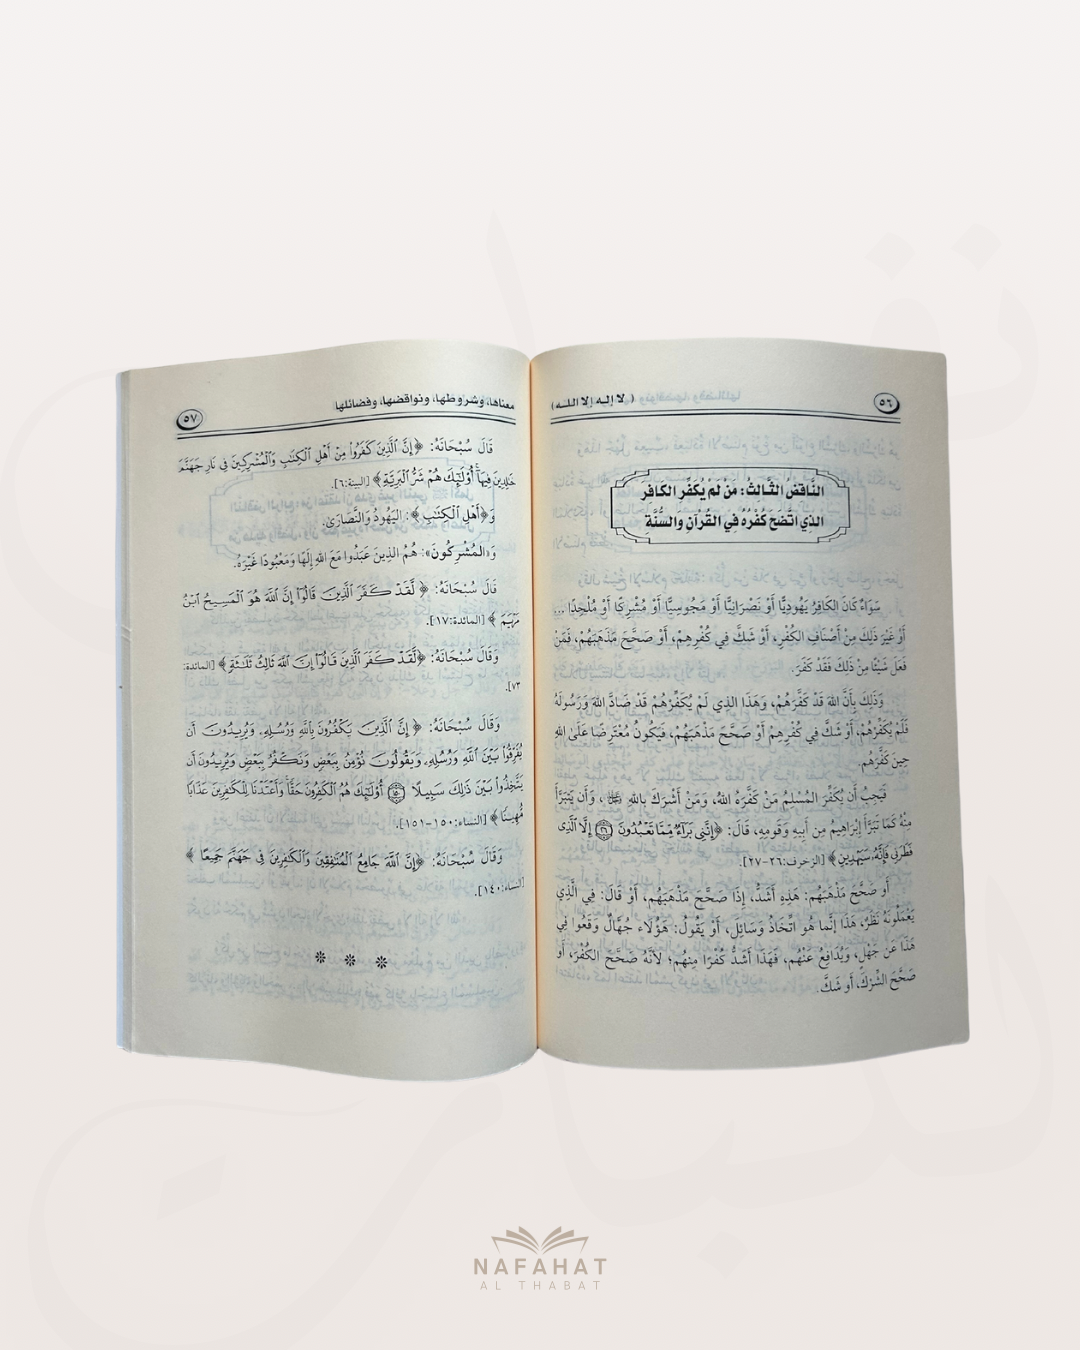 ٥٦
( لا إله إلا الله )
النَّاقضُ الثَّالثُ: مَنْ لَمْ يُكَفِّرِ الكَافِرَ
الذِي اتَّضَحَ كُفْرُهُ فِي القُرْآنِ والسُّنَّةِ
سَوَاءٌ كَانَ الكَافِرُ يَهُودِيًّا أَوْ نَصْرَانِيًّا أَوْ مَجُوسِيًّا أَوْ مُشْرِكًا أَوْ مُلْحِدًا ...
أَوْ غَيْرَ ذَلِكَ مِنْ أَصْنَافِ الكُفْرِ، أَوْ شَكَّ فِي كُفْرِهِمْ، أَوْ صَحَّحَ مَذْهَبَهُمْ، فَمَنْ
فَعَلَ شَيْئًا مِنْ ذَلِكَ فَقَدْ كَفَرَ.
وَذَلِكَ بِأَنَّ اللهَ قَدْ كَفَّرَهُمْ، وَهَذَا الذِي لَمْ يُكَفِّرْهُمْ قَدْ ضَادَّ اللهَ وَرَسُولَهُ
فَلَمْ يُكَفِّرْهُمْ، أَوْ شَكَّ فِي كُفْرِهِمْ أَوْ صَحَّحَ مَذْهَبَهُمْ، فَيَكُونُ مُعْتَرِضًا عَلَى اللهِ
حِينَ كَفَّرَهُم.
فَيَجِبُ أَن يُكَفِّرَ المُسْلِمُ مَنْ كَفَّرَهُ اللهُ، وَمَنْ أَشْرَكَ بِاللهِ ﷻ، وَأَن يَتَبَرَّأَ
مِنْهُ كَمَا تَبَرَّأَ إِبْرَاهِيمُ مِن أَبِيهِ وَقَومِهِ، قَالَ: ﴿إِنَّنِي بَرَآءٌ مِّمَّا تَعْبُدُونَ ۝٢٦ إِلَّا ٱلَّذِى
فَطَرَنِى فَإِنَّهُۥ سَيَهْدِينِ﴾ [الزخرف: ٢٦-٢٧].
أَو صَحَّحَ مَذْهَبَهُم: هَذِهِ أَشَدُّ، إِذَا صَحَّحَ مَذْهَبَهُم، أَوْ قَالَ: فِي الَّذِي
يَعْمَلُونَهُ نَظَرٌ، هَذَا إِنَّمَا هُو اتِّخَاذُ وَسَائِلَ، أَو يَقُولُ: هَؤُلَاء جُهَّالٌ وَقَعُوا فِي
هَذَا عَنْ جَهْلٍ، وَيُدَافِعُ عَنْهُم، فَهَذَا أَشَدُّ كُفْرًا مِنهُم؛ لأَنَّهُ صَحَّحَ الكُفْرَ، أَو
صَحَّحَ الشِّرْكَ، أَو شَكَّ.
معناها، وشروطها، ونواقضها، وفضائلها
٥٧
قَالَ سُبْحَانَهُ: ﴿إِنَّ ٱلَّذِينَ كَفَرُوا۟ مِنْ أَهْلِ ٱلْكِتَٰبِ وَٱلْمُشْرِكِينَ فِى نَارِ جَهَنَّمَ
خَٰلِدِينَ فِيهَآ أُو۟لَٰٓئِكَ هُمْ شَرُّ ٱلْبَرِيَّةِ﴾ [البينة:٦].
وَ﴿أَهْلِ ٱلْكِتَٰبِ﴾: اليَهُودُ وَالنَّصَارَى.
وَ«المُشْرِكُونَ»: هُمُ الذِينَ عَبَدُوا مَعَ اللهِ إِلَهًا وَمَعْبُودًا غَيْرَهُ.
قَالَ سُبْحَانَهُ: ﴿لَّقَدْ كَفَرَ ٱلَّذِينَ قَالُوٓا۟ إِنَّ ٱللَّهَ هُوَ ٱلْمَسِيحُ ٱبْنُ
مَرْيَمَ﴾ [المائدة:١٧].
وَقَالَ سُبْحَانَهُ: ﴿لَّقَدْ كَفَرَ ٱلَّذِينَ قَالُوٓا۟ إِنَّ ٱللَّهَ ثَالِثُ ثَلَٰثَةٍ﴾ [المائدة:
٧٣].
وَقَالَ سُبْحَانَهُ: ﴿إِنَّ ٱلَّذِينَ يَكْفُرُونَ بِٱللَّهِ وَرُسُلِهِۦ وَيُرِيدُونَ أَن
يُفَرِّقُوا۟ بَيْنَ ٱللَّهِ وَرُسُلِهِۦ وَيَقُولُونَ نُؤْمِنُ بِبَعْضٍ وَنَكْفُرُ بِبَعْضٍ وَيُرِيدُونَ أَن
يَتَّخِذُوا۟ بَيْنَ ذَٰلِكَ سَبِيلًا ۝١٥٠ أُو۟لَٰٓئِكَ هُمُ ٱلْكَٰفِرُونَ حَقًّا وَأَعْتَدْنَا لِلْكَٰفِرِينَ عَذَابًا
مُّهِينًا﴾ [النساء: ١٥٠-١٥١].
وَقَالَ سُبْحَانَهُ: ﴿إِنَّ ٱللَّهَ جَامِعُ ٱلْمُنَٰفِقِينَ وَٱلْكَٰفِرِينَ فِى جَهَنَّمَ جَمِيعًا﴾
[النساء: ١٤٠].
NAFAHAT
AL THABAT